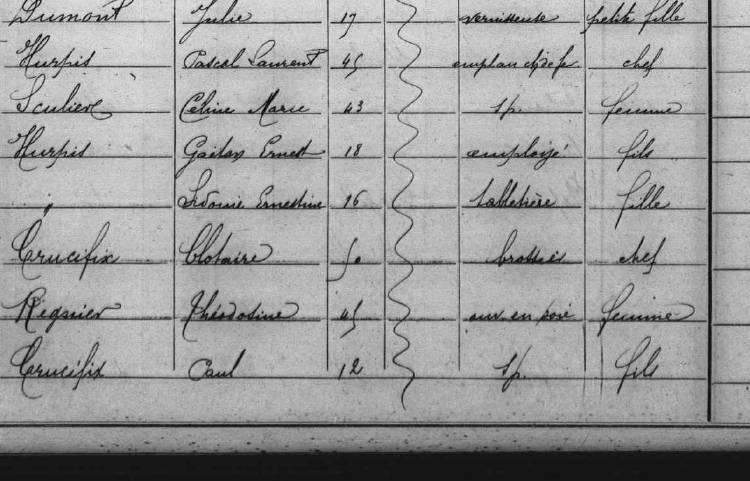 Dumont Julie 17 vernisseuse petite fille
Hurpis Pascal Laurent 45 empl au ch de fe chef
Sculiere Celine Marie 43 sp. femme
Hurpis Gaston Ernest 18 employé fils
" Sidonie Ernestine 16 tabletière fille
Crucifix Clotaire 50 brossier chef
Régnier Théodosine 45 ouv en soie femme
Crucifix Paul 12 sp. fils